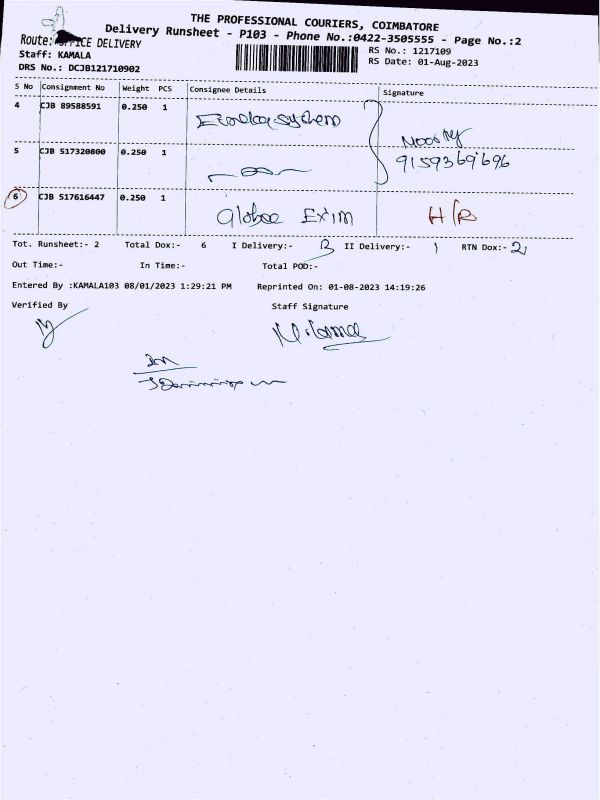 THE PROFESSIONAL COURIERS, COIMBATORE
Delivery Runsheet - P103 - Phone No.:0422-3505555 - Page No.:2
Route: OFFICE DELIVERY
RS No.: 1217109
Staff: KAMALA
RS Date: 01-Aug-2023
DRS No.: DCJB121710902
S No Consignment No Weight PCS Consignee Details Signature
4 CJB 89588591 0.250 1
Moorthy
9159369696
5 CJB 517320800 0.250 1
6 CJB 517616447 0.250 1 Globee Exim H/B
Tot. Runsheet:- 2 Total Dox:- 6 I Delivery:- 3 II Delivery:- 1 RTN Dox:- 2
Out Time:- In Time:- Total POD:-
Entered By :KAMALA103 08/01/2023 1:29:21 PM Reprinted On: 01-08-2023 14:19:26
Verified By Staff Signature